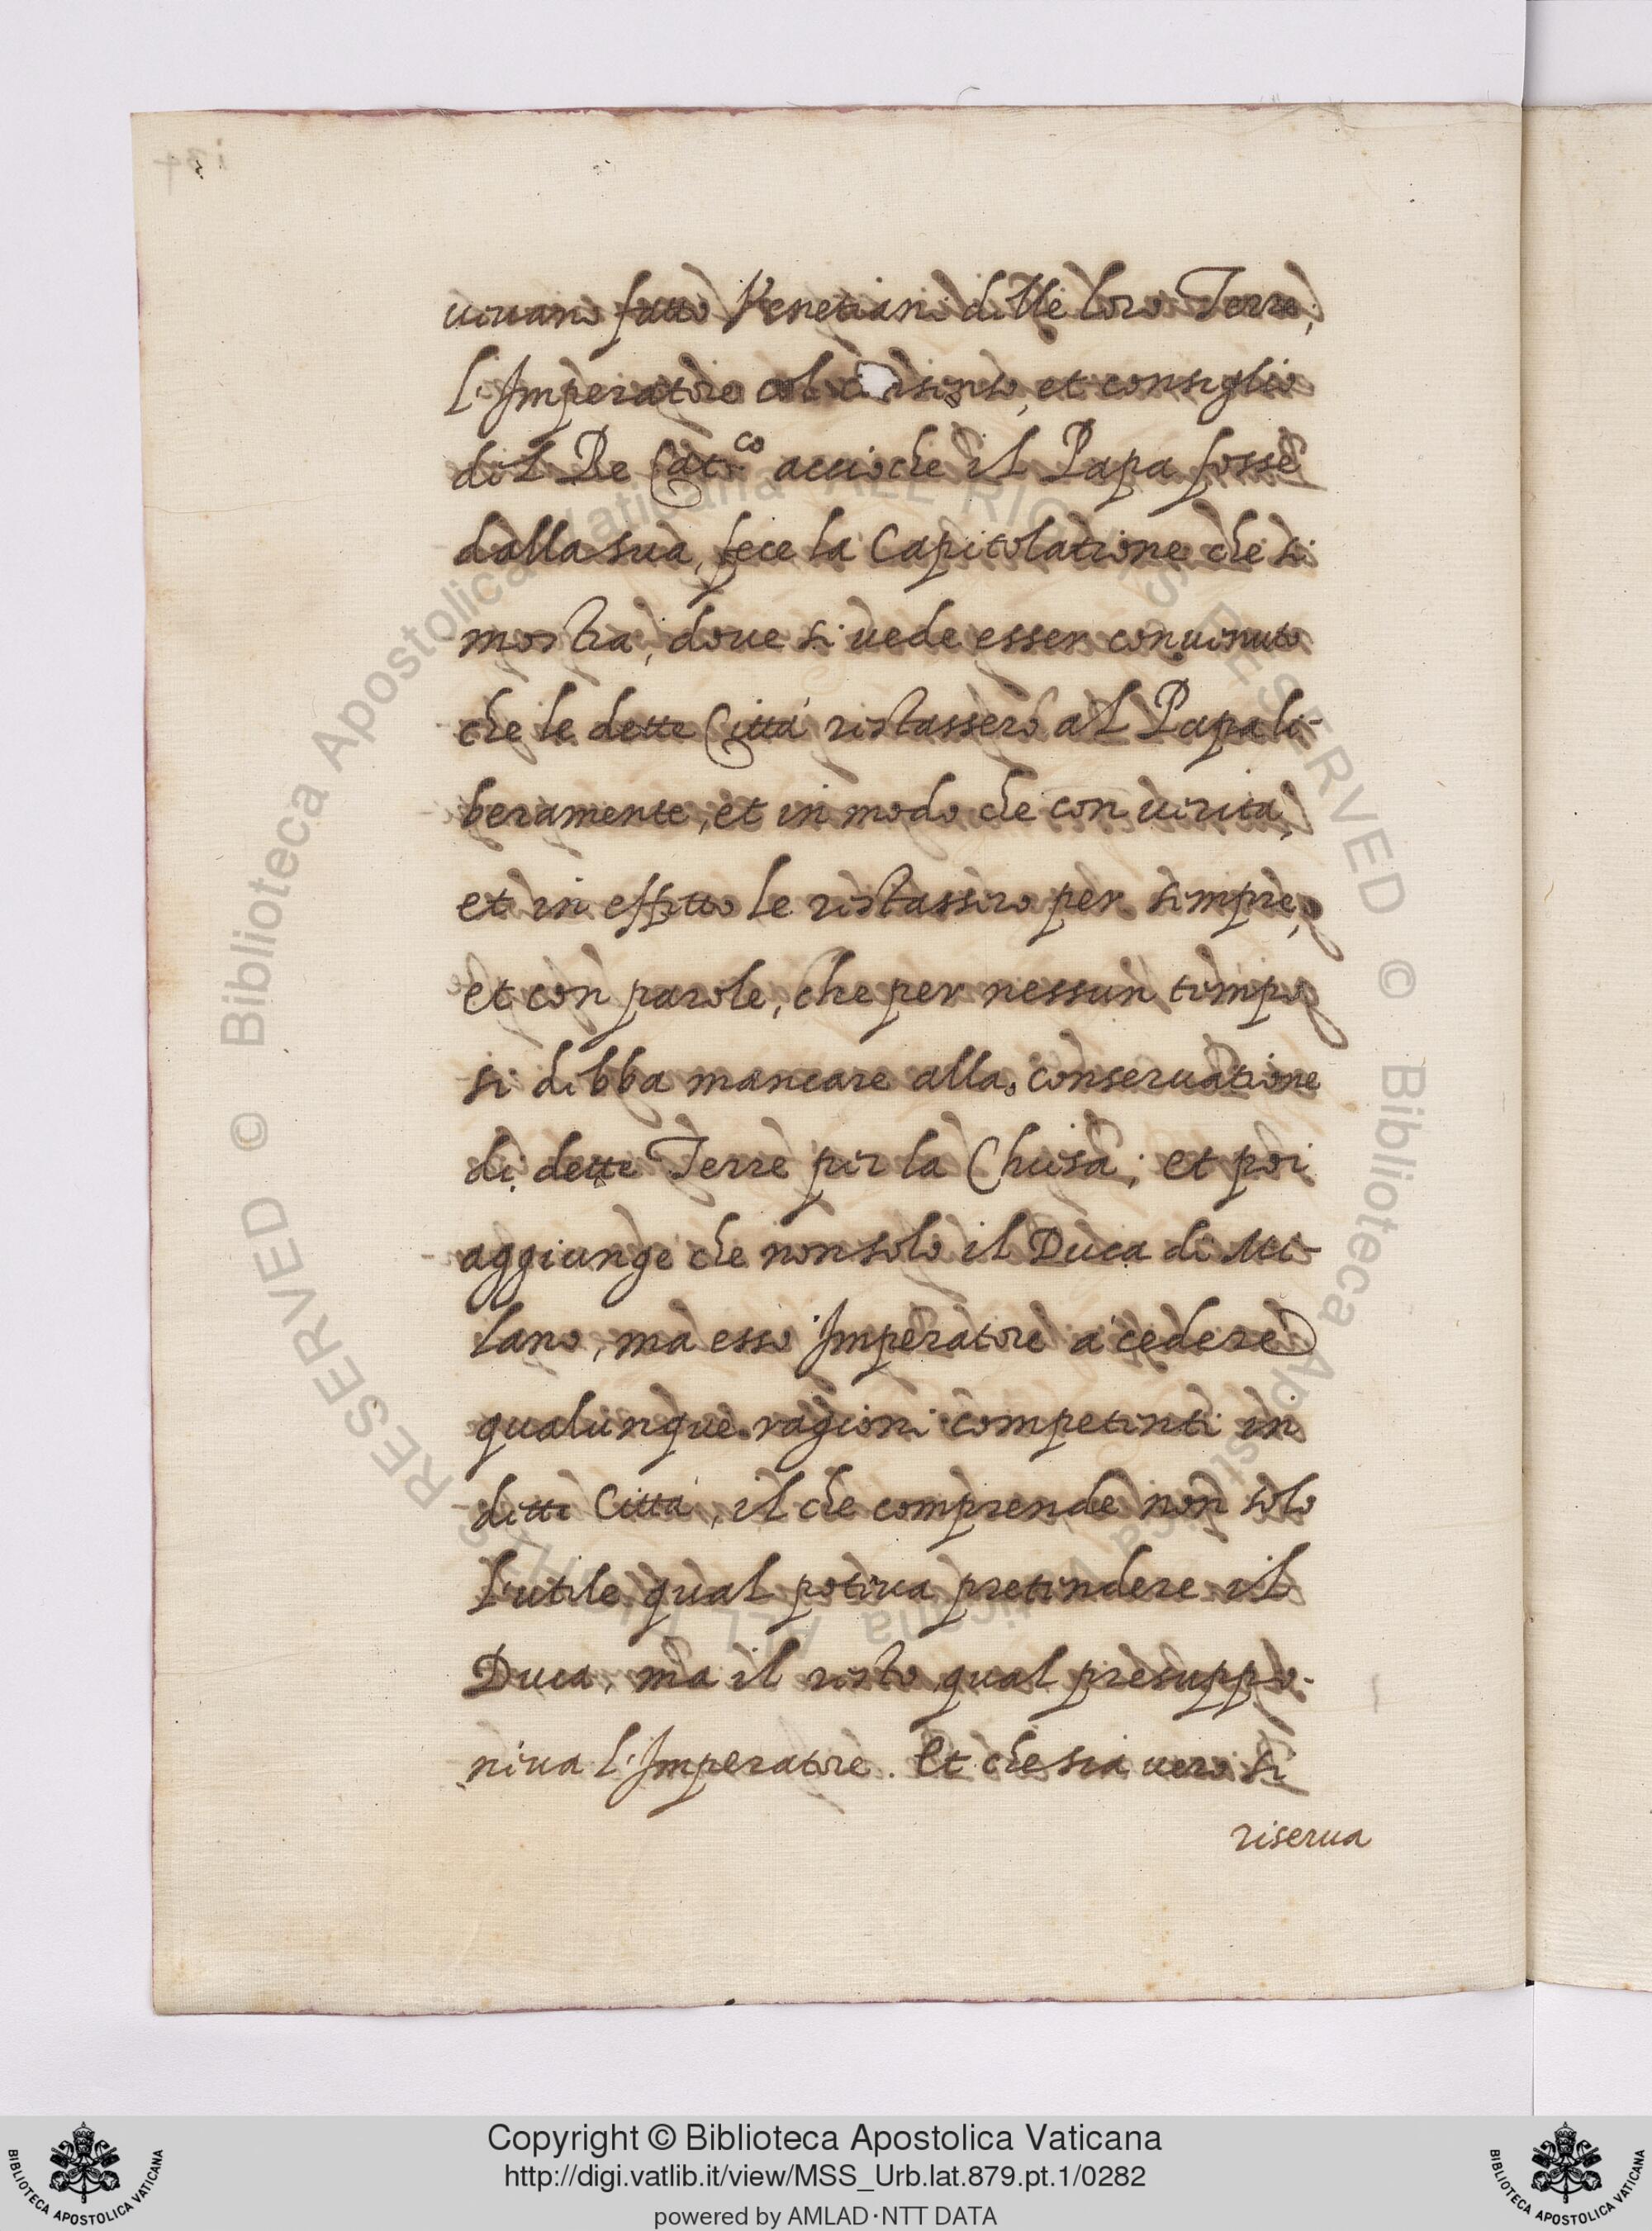 ueuano fatto Venetiani delle loro Terre,
L'Imperatore col consenso, et consiglio
del Re Catco accioche il Papa fosse
dalla sua, fece la Capitolatione che si
mostra, doue si uede esser conuenuto
che le dette Città restassero al Papa li-
beramente, et in modo che con uerità,
et in effetto le restassero per sempre,
et con parole, che per nessun tempo
si debba mancare alla conseruatione
di dette Terre per la Chiesa; et poi
aggiunge che non solo il Duca di Mi-
lano, mà esso Imperatore à cedere
qualunque ragioni competenti in
dette Città, il che comprende non solo
l'utile qual poteua pretendere il
Duca, ma il resto qual presuppo-
neua l'Imperatore. Et che sia uero si
riserua
Biblioteca Apostolica Vaticana ALL RIGHTS RESERVED ©
Biblioteca Apostolica Vaticana ALL RIGHTS RESERVED ©
Copyright © Biblioteca Apostolica Vaticana
http://digi.vatlib.it/view/MSS_Urb.lat.879.pt.1/0282
powered by AMLAD·NTT DATA
BIBLIOTECA APOSTOLICA VATICANA
BIBLIOTECA APOSTOLICA VATICANA